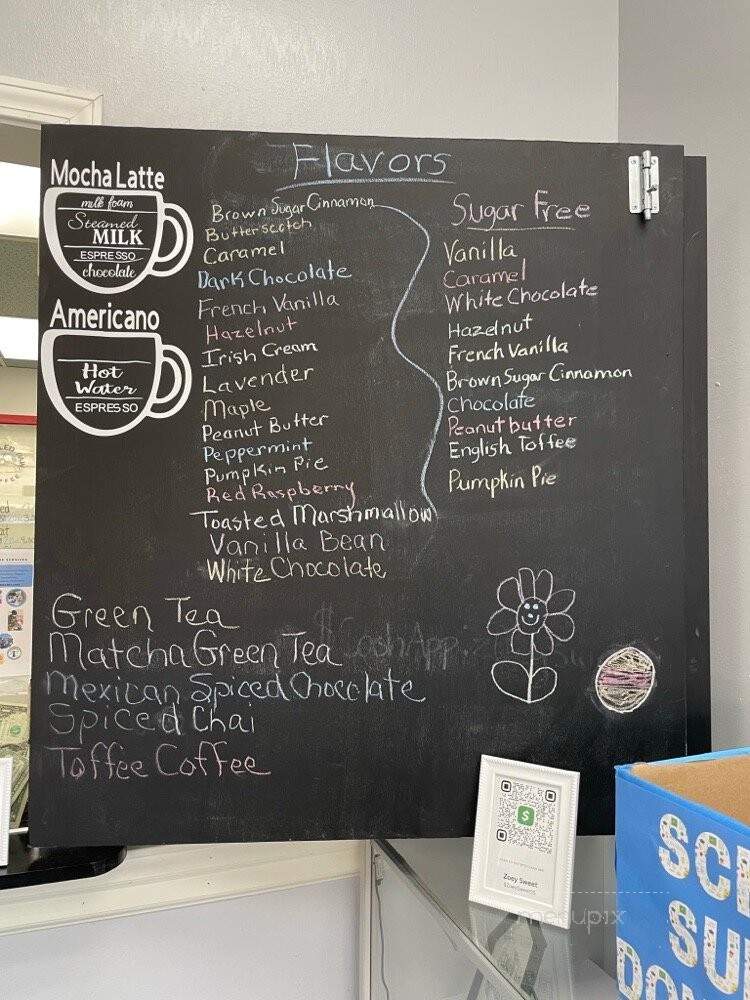 Mocha Latte
milk foam
Steamed
MILK
ESPRESSO
chocolate
Americano
Hot
Water
ESPRESSO
Flavors
Brown Sugar Cinnamon
Butterscotch
Caramel
Dark Chocolate
French Vanilla
Hazelnut
Irish Cream
Lavender
Maple
Peanut Butter
Peppermint
Pumpkin Pie
Red Raspberry
Toasted Marshmallow
Vanilla Bean
White Chocolate
Sugar Free
Vanilla
Caramel
White Chocolate
Hazelnut
French Vanilla
Brown Sugar Cinnamon
Chocolate
Peanut butter
English Toffee
Pumpkin Pie
Green Tea
Matcha Green Tea
Mexican Spiced Chocolate
Spiced Chai
Toffee Coffee
$CashApp
Zoey Sweet
menupix
SU